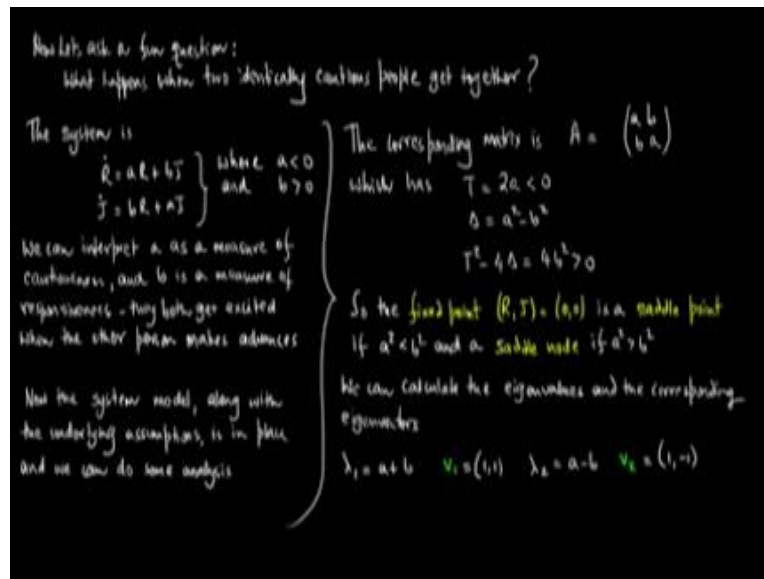 Now Lets ask a fun question:
What happens when two identically cautious people get together?
The system is
Ṙ = aR + bJ
J̇ = bR + aJ
where a < 0
and b > 0
We can interpret a as a measure of
cautiousness, and b is a measure of
responsiveness - they both get excited
when the other person makes advances
Now the system model, along with
the underlying assumptions, is in place
and we can do some analysis
The corresponding matrix is A = (a b
b a)
which has T = 2a < 0
Δ = a² - b²
T² - 4Δ = 4b² > 0
So the fixed point (R, J) = (0,0) is a saddle point
if a² < b² and a saddle node if a² > b²
We can calculate the eigenvalues and the corresponding
eigenvectors
λ₁ = a + b V₁ = (1,1) λ₂ = a - b V₂ = (1,-1)